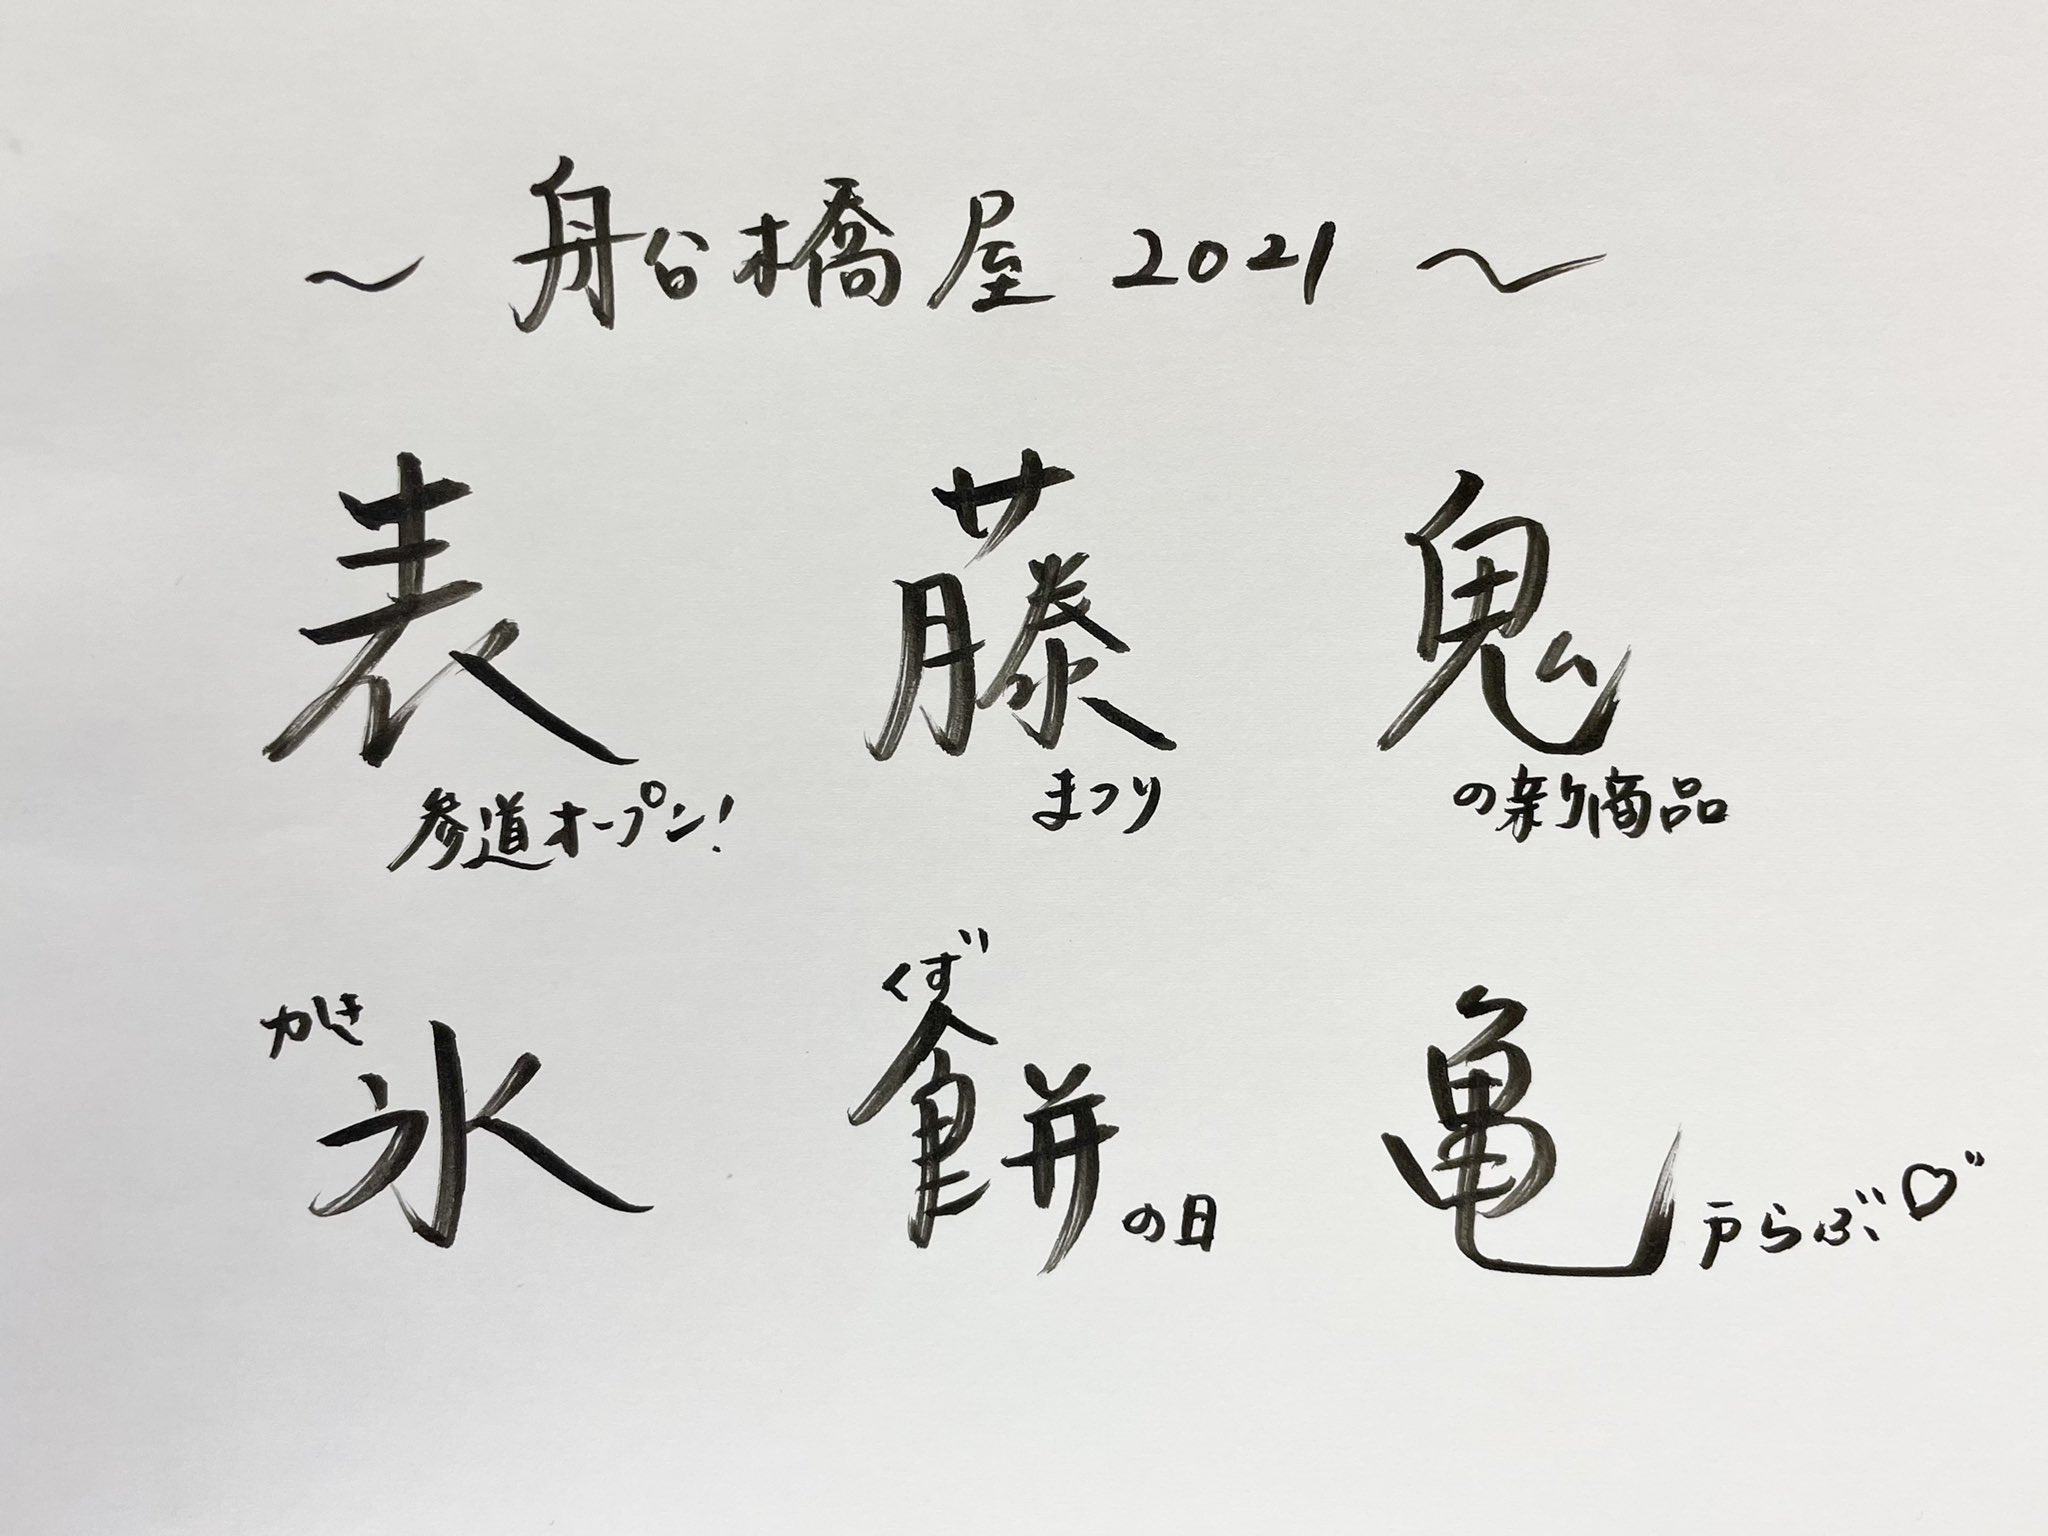 ～ 船橋屋 2021 ～
表参道オープン!
藤まつり
鬼の新商品
かき氷
くず餅の日
亀戸らぶ♡